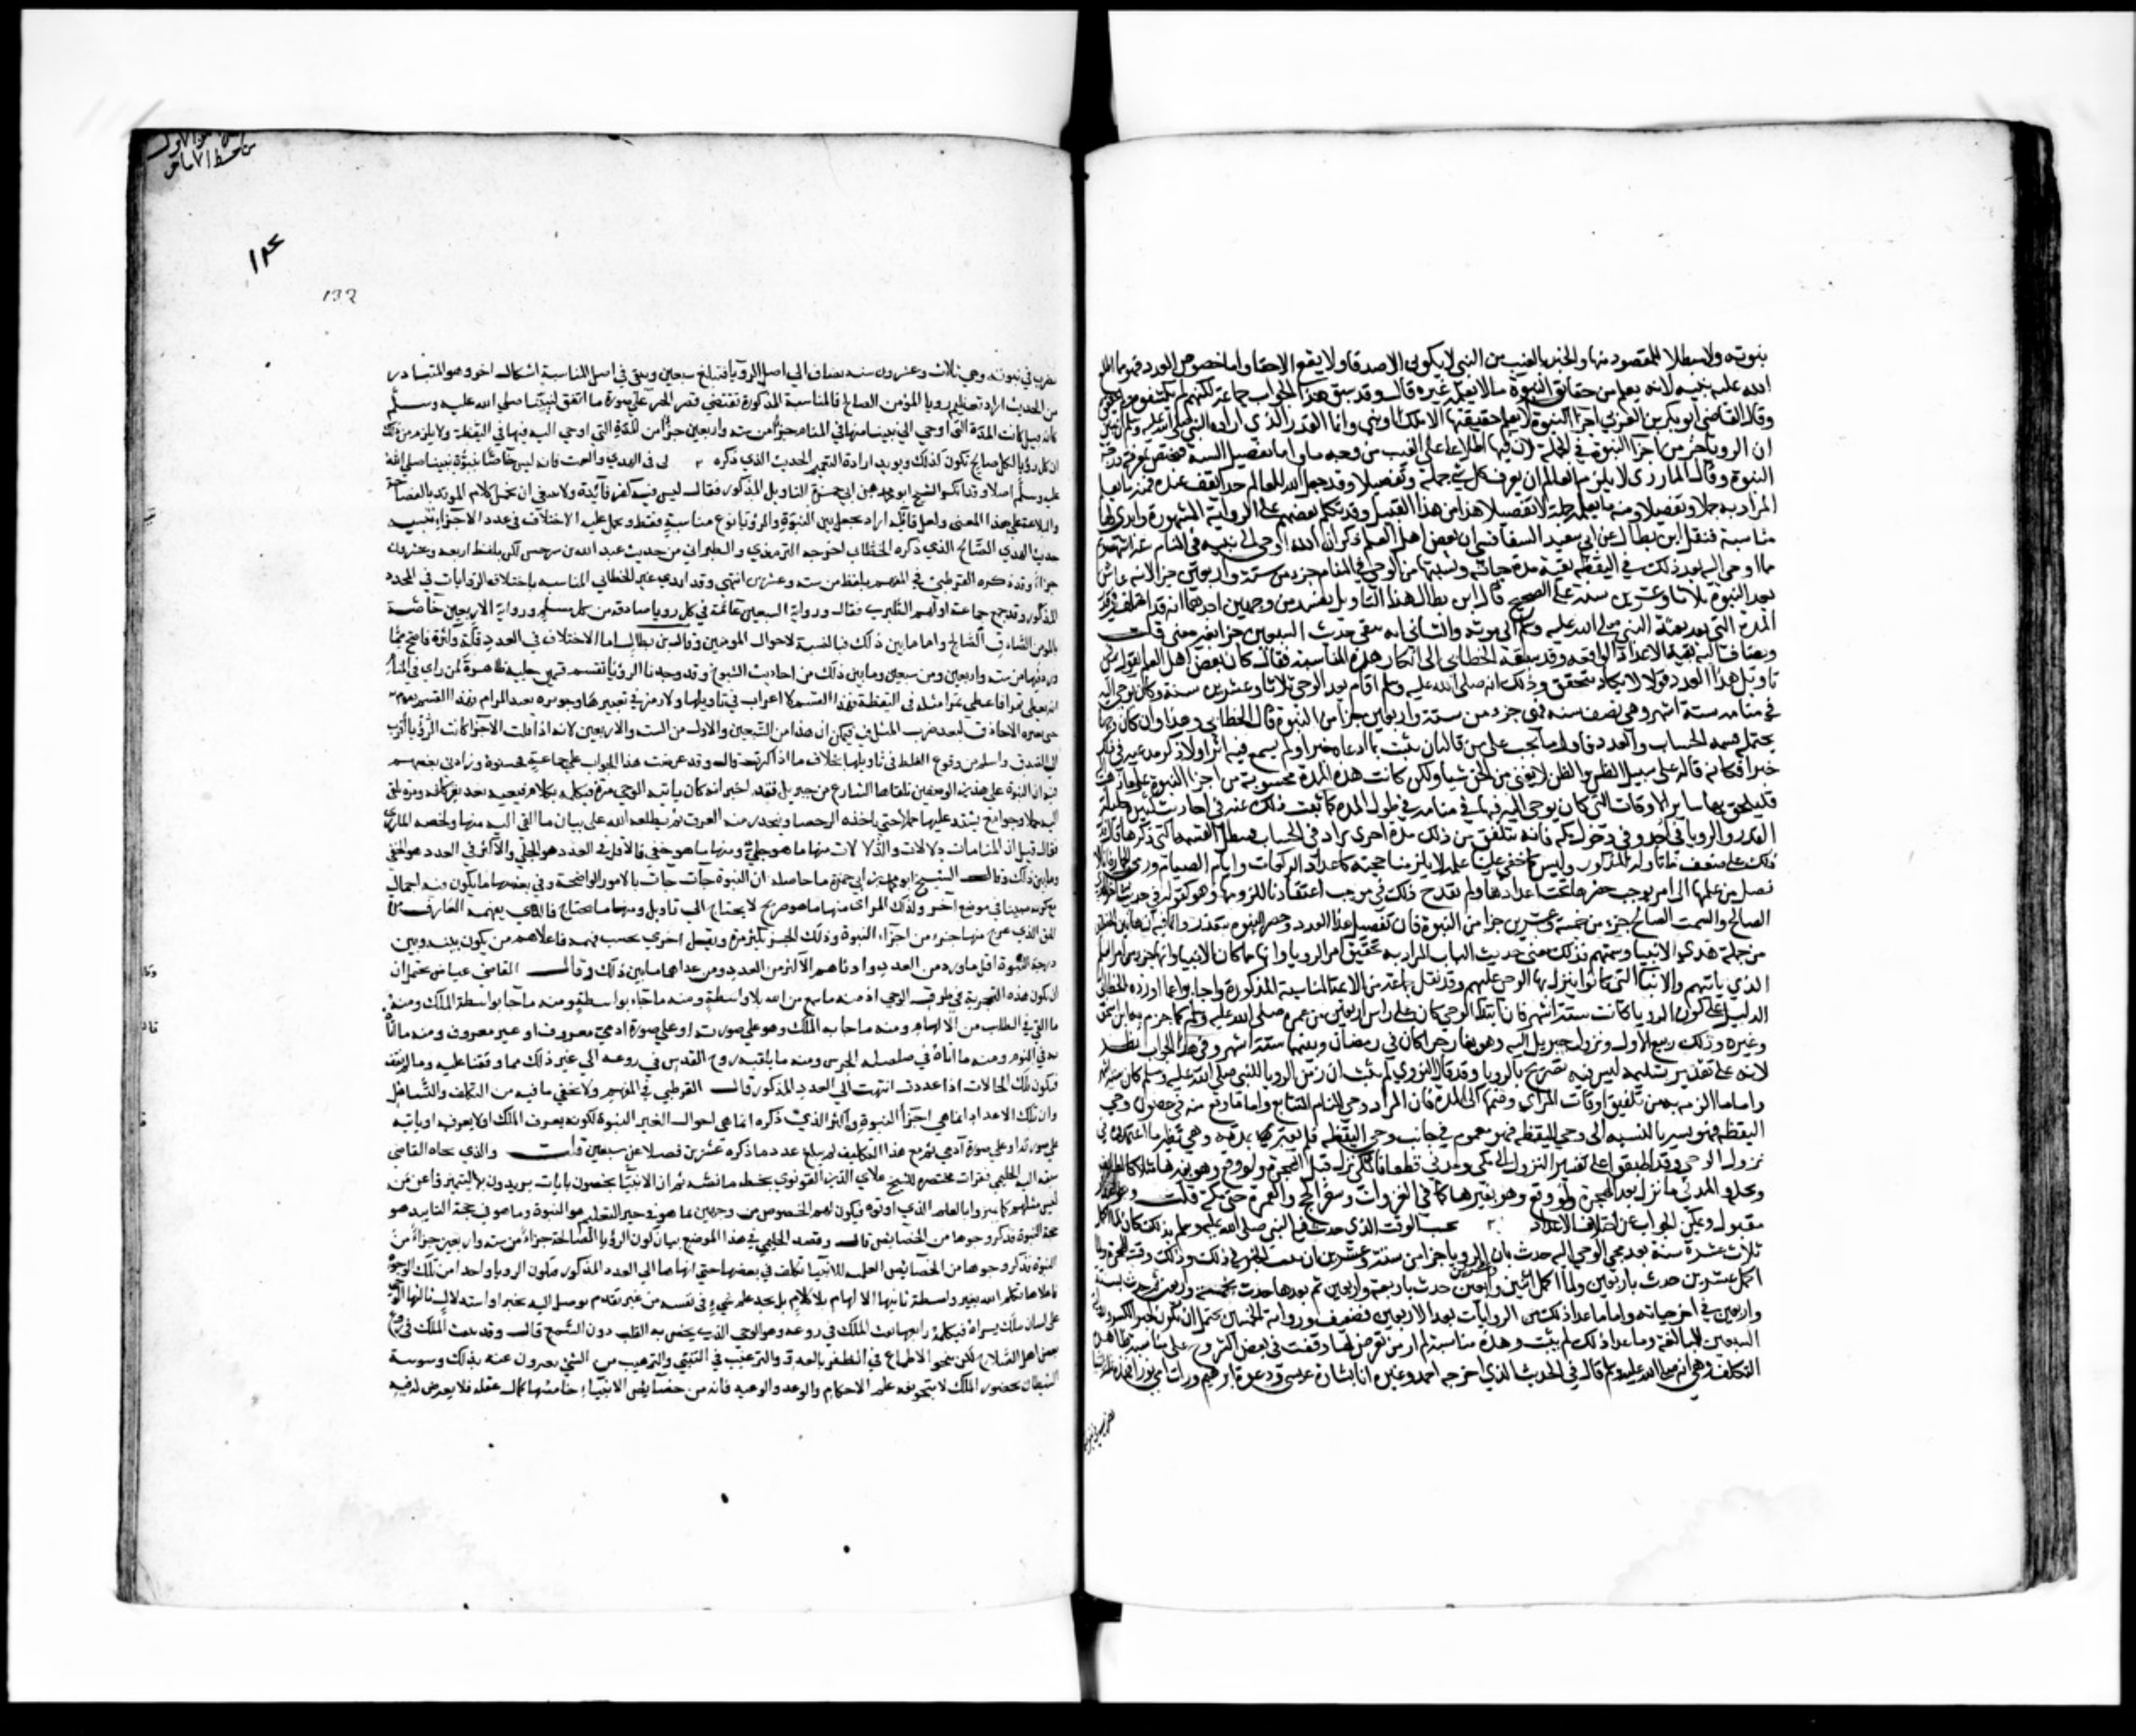 بنبوته ولا يبطلا للمقصود منها والخبر بالغيب من النبي لا يكون الا صدقا ولا يقع الا حقا واما خصوص العدد فهو مما اطلع
الله عليه نبيه لانه يعلم من حقائق النبوة ما لا يعلمه غيره قال وقد سبق هذا الجواب جماعة لكنهم لم يكشفوه
وقال القاضي ابو بكر بن العربي اجزا النبوة لا يعلم حقيقتها الا ملك او نبي وانما القدر الذي اراده النبي صلى الله عليه وسلم ان يبين
ان الرويا جزء من اجزا النبوة في الجملة لان فيها اطلاعا على الغيب من وجه ما واما تفصيل النسبة فيختص بمعرفته درجة
النبوة وقال المازري لا يلزم العالم ان يعرف كل شي جملة وتفصيلا وقد جعل الله للعالم حدا يقف عنده فمنه ما يعلم
المراد به جملا وتفصيلا ومنه ما يعلمه جملة لا تفصيلا وهذا من هذا القبيل وقد تكلم بعضهم على الرواية المشهورة وابدى لها
مناسبة فنقل ابن بطال عن ابي سعيد السفاقسي ان بعض اهل العلم ذكر ان الله اوحى الى نبيه في المنام ستة اشهر
ثم اوحى اليه بعد ذلك في اليقظة بقية مدة حياته ونسبتها من الوحي في المنام جزء من ستة واربعين جزا لانه عاش
بعد النبوة ثلاثا وعشرين سنة على الصحيح قال ابن بطال هذا التاويل يفسد من وجهين احدهما انه قد اختلف في قدر
المدة التي بعد بعثة النبي صلى الله عليه وسلم الى موته والثاني انه يبقى حديث السبعين جزا بغير معنى قلت
ويضاف اليه بقية الاعداد الواقعة وقد سبقه الخطابي الى انكار هذه المناسبة فقال كان بعض اهل العلم يقول في
تاويل هذا العدد قولا لا يكاد يتحقق وذلك انه صلى الله عليه وسلم اقام بعد الوحي ثلاثا وعشرين سنة وكان يوحى اليه
في منامه ستة اشهر وهي نصف سنه فهي جزء من ستة واربعين جزا من النبوة قال الخطابي وهذا وان كان وجها
يحتمله قسمه الحساب والعدد فاول ما يجب على من قاله ان يثبت ما ادعاه خبرا ولم يسمع فيه اثرا ولا ذكر مدعيه في ذلك
خبرا فكانه قاله على سبيل الظن والظن لا يغني من الحق شيا ولئن كانت هذه المدة محسوبة من اجزا النبوة على ما ذهب
فليلحق بها ساير الاوقات التي كان يوحى اليه فيها في منامه في طول المدة كما ثبت ذلك عنه في احاديث كثيرة جليلة
القدر والرويا في احد وفي دخول مكه فانه يتلفق من ذلك مدة اخرى تزاد في الحساب فتبطل القسمة التي ذكرها فدل
ذلك على ضعف ما تاوله المذكور وليس كل ما خفي علينا علمه لا يلزمنا حجته كاعداد الركعات وايام الصيام ورمي الجمار فانا لا
نصل من علمها الى امر يوجب حصرها تحت اعدادها ولم يقدح ذلك في موجب اعتقادنا للزومها وهو كقوله في حديث اخر الهدي
الصالح والسمت الصالح جزء من خمسة وعشرين جزا من النبوة فان تفصيل هذا العدد وحصر النبوة متعذر وانما فيه ان هاتين الخصلتين
من جملة هدي الانبيا وسمتهم فكذلك معنى حديث الباب المراد به تحقيق امر الرويا وانها مما كان الانبيا
الذي ياتيهم والانباا التي كانوا ينزل بها الوحي عليهم وقد نقل جماعة من الاعتبار المناسبة المذكورة واجابوا عما اورده الخطابي
الدليل على كون الرويا كانت ستة اشهر فان ابتدا الوحي كان على راس اربعين من عمره صلى الله عليه وسلم كما جزم به ابن اسحق
وغيره وذلك ربيع الاول ونزول جبريل اليه وهو بغار حرا كان في رمضان وبينهما ستة اشهر وفي هذا الجواب نظر
لانه على تقدير تسليمه ليس فيه تصريح بالرويا وقد قال النووي لم يثبت ان زمن الرويا للنبي صلى الله عليه وسلم كان ستة اشهر
واما ما الزمه به من تلفيق اوقات المرائي وضمها الى المدة فان المراد وحي المنام المتتابع واما ما وقع منه في حصول وحي
اليقظه فهو يسير بالنسبه الى وحي اليقظه فهو مغمور في جانب وحي اليقظه فلم يعتبر وهي نظير ما اعتمدوه في
نزول الوحي وقد اطبقوا على تقسيم النزول الى مكي ومدني قطعا فالمكي نزل قبل الهجرة ولو وقع وهو بغيرها مثلا كالطائف
ونخله والمدني ما نزل بعد الهجرة ولو وقع وهو بغيرها كما في الغزوات وسفر الحج والعمرة حتى مكة قلت وهو
مقبول ويمكن الجواب عن اختلاف الاعداد بحسب الوقت الذي حدث فيه النبي صلى الله عليه وسلم بذلك كان لما اكمل
ثلاث عشرة سنة بعد مجي الوحي اليه حدث بان الرويا جزا من ستة وعشرين ان ثبت الخبر بذلك وذلك وقت الهجرة ولما
اكمل عشرين حدث باربعين ولما اكمل اثنين وعشرين حدث باربعة واربعين ثم بعدها حدث بخمسة واربعين ثم حدث بستة
واربعين في اخر حياته واما ما عدا ذلك من الروايات بعد الاربعين فضعيف ورواية الخمسين يحتمل ان تكون لجبر الكسر ورواية
السبعين للمبالغة وما عدا ذلك لم يثبت وهذه مناسبة لم ار من تعرض لها ووقفت في بعض الشروح على مناسبة ظاهرة
التكلف وهي انه صلى الله عليه وسلم قال في الحديث الذي اخرجه احمد وغيره انا بشارة عيسى ودعوة ابراهيم ورات امي نورا
132
تضرب في نبوته وهي ثلاث وعشرون سنه تضاف الى اصل الرويا فتبلغ سبعين ويبقى في اصل المناسبة اشكال اخر وهو المتبادر
من الحديث ارادة تعظيم رويا المؤمن الصالح فالمناسبة المذكورة تقتضي قصر الخبر على صورة ما اتفق لنبينا صلى الله عليه وسلم
كانه قيل كانت المدة التي اوحي الى نبينا منها في المنام جزءا من سته واربعين جزءا من المدة التي اوحي اليه فيها في اليقظة ولا يلزم من ذلك
ان كل رؤيا لكل صالح تكون كذلك ويويد ارادة التعميم الحديث الذي ذكره في الهدي والسمت فانه ليس خاصا بنبوة نبينا صلى الله
عليه وسلم اصلا وقد انكر الشيخ ابو محمد بن ابي جمرة التاويل المذكور فقال ليس فيه كبير فائدة ولا ينبغي ان يحمل كلام المويد بالفصاحة
والبلاغة على هذا المعنى ولعل قائله اراد يجعل بين النبوة والرؤيا نوع مناسبة فقط ويحمل عليه الاختلاف في عدد الاجزاء تنبيه
حديث الهدي الصالح الذي ذكره الخطابي اخرجه الترمذي والطبراني من حديث عبد الله بن سرجس لكن بلفظ اربعه وعشرين
جزءا وقد ذكره القرطبي في المفهم بلفظ من سته وعشرين انتهى وقد ابدى غير الخطابي المناسبه باختلاف الروايات في العدد
المذكور وقد جمع جماعة اولهم الطبري فقال ورواية السبعين عامة في كل رويا صادقه من كل مسلم ورواية الاربعين خاصة
بالمومن الصادق الصالح واما ما بين ذلك فبالنسبة لاحوال المومنين وقال ابن بطال اما الاختلاف في العدد قلة وكثرة فاصح ما
ورد فيها من سته واربعين ومن سبعين وما بين ذلك من احاديث الشيوخ وقد وجدنا الرؤيا تنقسم قسمين جلية ظاهرة كمن راى في المنام
انه يعطى تمرا فاعطي تمرا مثله في اليقظة فهذا القسم لا اغراب في تاويلها ولا رمز في تعبيرها ومرموزة بعيد المرام فهذا القسم
حتى يعبره الا حاذق لبعد ضرب المثل فيه فيمكن ان هذا من السبعين والاول من الست والاربعين لانه اذا قلت الاجزا كانت الرؤيا اقرب
الى الصدق واسلم من وقوع الغلط في تاويلها بخلاف ما اذا كثرت قال وقد عرضت هذا الجواب على جماعة فحسنوه وزادني بعضهم
فيه ان النبوة على مثل هذين الوصفين تلقاها الشارع من جبريل فقد اخبر انه كان ياتيه الوحي مرة فيكلمه بكلام فيعيه بغير كلفه ومرة يلقي
اليه جملا وجوامع يشتد عليه حملها حتى تاخذه الرحضا وينحدر منه العرق ثم يطلعه الله على بيان ما القي اليه منها ولخصه المازري
فقال قيل ان المنامات دلالات والدلالات منها ما هو جلي ومنها ما هو خفي فالاقل في العدد هو الجلي والاكثر في العدد هو الخفي
وما بين ذلك وقال الشيخ ابو محمد بن ابي جمرة ما حاصله ان النبوة جات بالامور الواضحة وفي بعضها ما يكون فيه اجمال
مع كونه مبينا في موضع آخر ولذلك المرائي منها ما هو صريح لا يحتاج الى تاويل ومنها ما يحتاج فالذي يفهمه العارف من
الحق الذي عرج منها جزء من اجزاء النبوة وذلك الجزء يكثر مرة ويقل اخرى بحسب فهمه فاعلاهم من يكون بينه وبين
درجة النبوة اقل ما ورد من العدد وادناهم الاكثر من العدد ومن عداهما ما بين ذلك وقال القاضي عياض يحتمل ان
ان تكون هذه التجزية في طرق الوحي اذ منه ما سمع من الله بلا واسطة ومنه ما جاء بواسطة الملك ومنه
ما القي في القلب من الالهام ومنه ما جا به الملك وهو على صورته او على صورة ادمي معروف او غير معروف ومنه ما اتاه
به في النوم ومنه ما اتاه في صلصلة الجرس ومنه ما يلقيه روح القدس في روعه الى غير ذلك مما وقفنا عليه وما لم نقف
فتكون تلك الحالات اذا عددت انتهت الى العدد المذكور قال القرطبي في المفهم ولا يخفى ما فيه من التكلف والتساهل
وان تلك الاعداد انما هي اجزاء النبوة واكثر الذي ذكره انما هي احوال لغير النبوة لكونه يعرف الملك او لا يعرفه او ياتيه
على صورته او على صورة آدمي ثم مع هذا التكليف لم يبلغ عدد ما ذكره عشرين فضلا عن سبعين قلت والذي نحاه القاضي
سبقه اليه الحليمي فقرات في مختصره للشيخ علاي الدين القونوي بخطه ما نصه ثم ان الانبياء يختصون بايات يويدون بها ليتميزوا عمن
ليس مثلهم كما تميزوا بالعلم الذي اوتوه فيكون لهم الخصوص من وجهين فما هو في حيز التعليم هو النبوة وما هو في حيز التاييد هو
حجة النبوة قال وقصد الحليمي في هذا الموضع بيان كون الرؤيا الصالحة جزءا من سته واربعين جزءا من
النبوة فذكر وجوها من الخصائص العلمية للانبياء تكلف في بعضها حتى انهاها الى العدد المذكور فتكون الرويا واحدا من تلك الوجوه
فاعلاها تكليم الله بغير واسطة ثانيها الالهام بلا كلام بل يجد علم شيء في نفسه من غير تقدم ما يوصل اليه بحس او استدلال ثالثها الوحي
على لسان ملك يراه فيكلمه رابعها نفث الملك في روعه وهو الوحي الذي يخص به القلب دون السمع قال وقد ينفث الملك في روع
بعض اهل الصلاح لكن بنحو الاطماع في الظفر بالعدو والترغيب في الشيء والترهيب من الشي فيزول عنه بذلك وسوسة
الشيطان بحضور الملك لا بنحو نفي علم الاحكام والوعد والوعيد فانه من خصائص الانبياء خامسها كمال عقله فلا يعرض له فيه